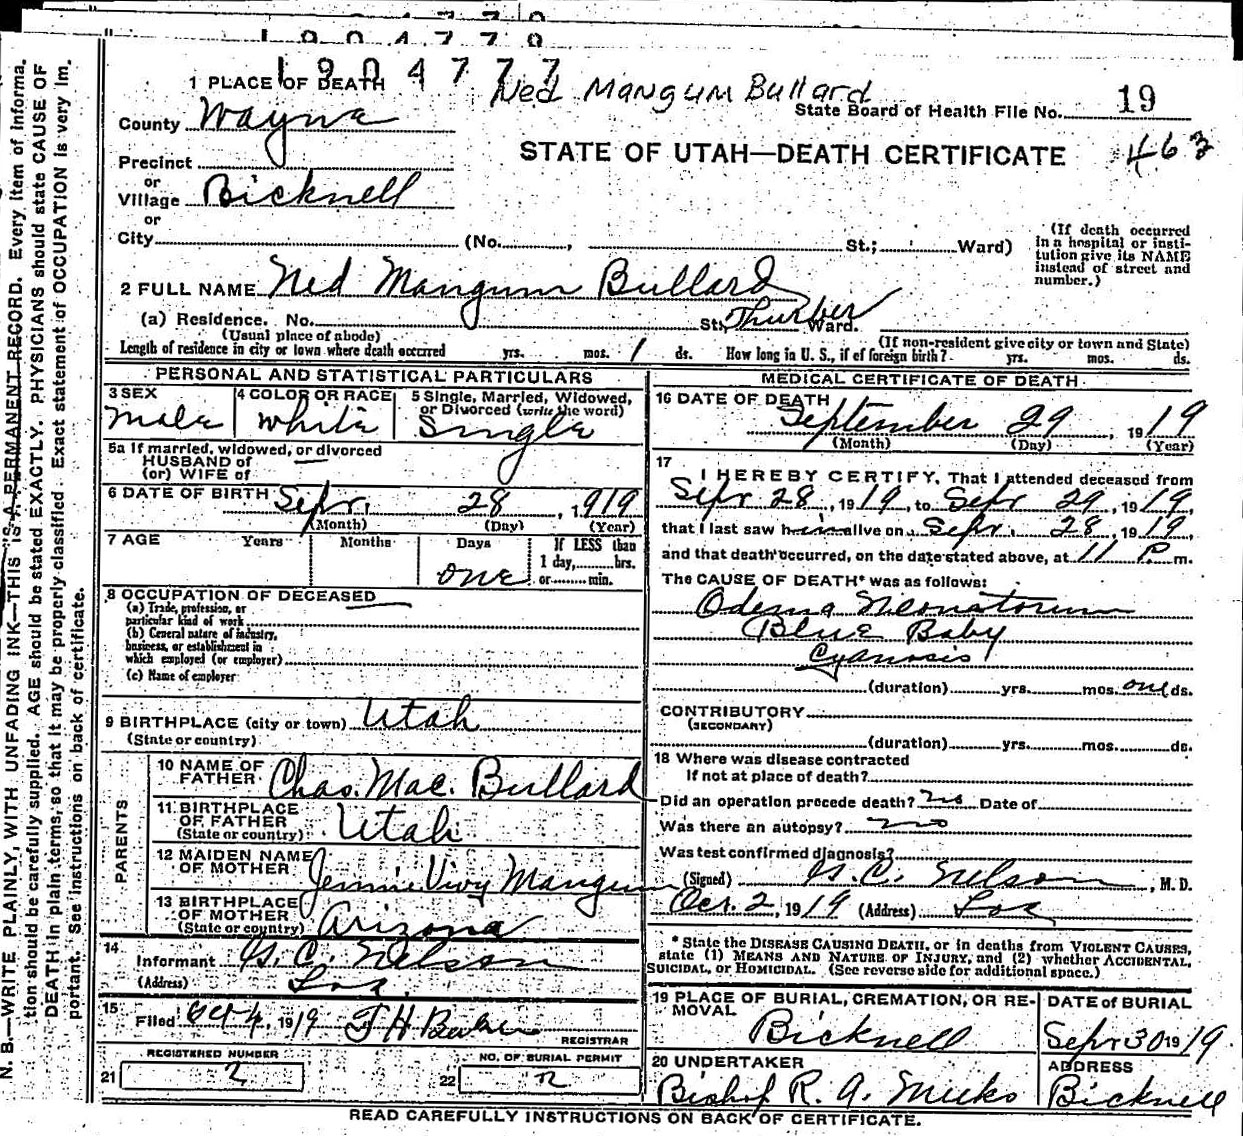 1904778
1904777
Ned Mangum Bullard
1 PLACE OF DEATH
State Board of Health File No. 19
County Wayne
STATE OF UTAH—DEATH CERTIFICATE 463
Precinct
or
Village Bicknell
or
City (No. , St.; Ward)
(If death occurred in a hospital or institution give its NAME instead of street and number.)
2 FULL NAME Ned Mangum Bullard
(a) Residence. No. St. Thurber Ward.
(Usual place of abode) (If non-resident give city or town and State)
Length of residence in city or town where death occurred yrs. mos. 1 ds. How long in U. S., if of foreign birth? yrs. mos. ds.
PERSONAL AND STATISTICAL PARTICULARS
3 SEX male
4 COLOR OR RACE white
5 Single, Married, Widowed, or Divorced (write the word) Single
5a If married, widowed, or divorced
HUSBAND of
(or) WIFE of
6 DATE OF BIRTH Sept. 28, 1919
(Month) (Day) (Year)
7 AGE Years Months Days one
If LESS than 1 day, hrs. or min.
8 OCCUPATION OF DECEASED
(a) Trade, profession, or
particular kind of work
(b) General nature of industry,
business, or establishment in
which employed (or employer)
(c) Name of employer
9 BIRTHPLACE (city or town) Utah
(State or country)
PARENTS
10 NAME OF FATHER Chas. Mac. Bullard
11 BIRTHPLACE OF FATHER Utah
(State or country)
12 MAIDEN NAME OF MOTHER Jennie Vivy Mangum
13 BIRTHPLACE OF MOTHER Arizona
(State or country)
14
Informant G. C. Nelson
(Address) Loa.
15
Filed Oct 4, 1919 J H Baker
REGISTRAR
REGISTERED NUMBER
21 2
NO. OF BURIAL PERMIT
22 2
MEDICAL CERTIFICATE OF DEATH
16 DATE OF DEATH
September 29, 1919
(Month) (Day) (Year)
17
I HEREBY CERTIFY, That I attended deceased from
Sept 28, 1919, to Sept 29, 1919,
that I last saw him alive on Sept. 28, 1919,
and that death occurred, on the date stated above, at 11 P m.
The CAUSE OF DEATH* was as follows:
Odema Neonatorum
Blue Baby
Cyanosis
(duration) yrs. mos. one ds.
CONTRIBUTORY
(SECONDARY)
(duration) yrs. mos. ds.
18 Where was disease contracted
If not at place of death?
Did an operation precede death? no Date of
Was there an autopsy? no
Was test confirmed diagnosis?
(Signed) G. C. Nelson, M. D.
Oct. 2, 1919 (Address) Loa
* State the DISEASE CAUSING DEATH, or in deaths from VIOLENT CAUSES,
state (1) MEANS AND NATURE OF INJURY, and (2) whether ACCIDENTAL,
SUICIDAL, or HOMICIDAL. (See reverse side for additional space.)
19 PLACE OF BURIAL, CREMATION, OR REMOVAL
Bicknell
DATE of BURIAL
Sept 30 1919
20 UNDERTAKER
Bishop R. A. Meeks
ADDRESS
Bicknell
READ CAREFULLY INSTRUCTIONS ON BACK OF CERTIFICATE.
N. B.—WRITE PLAINLY, WITH UNFADING INK—THIS IS A PERMANENT RECORD. Every item of informa.
tion should be carefully supplied. AGE should be stated EXACTLY. PHYSICIANS should state CAUSE OF
DEATH in plain terms, so that it may be properly classified. Exact statement of OCCUPATION is very im.
portant. See instructions on back of certificate.